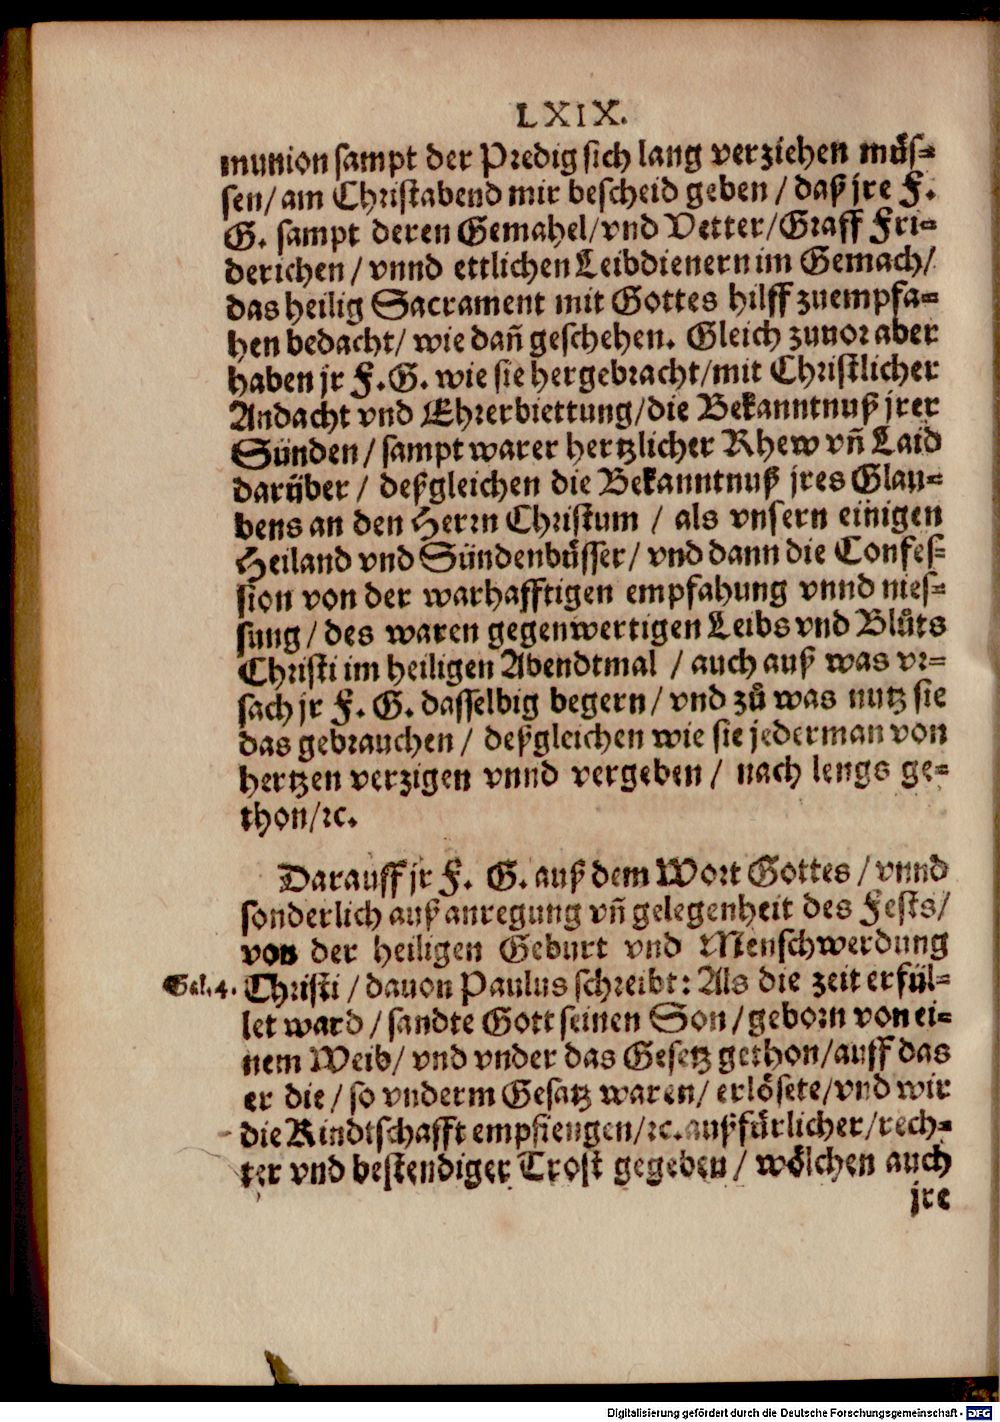 LXIX.
munion sampt der Predig sich lang verziehen müs-
sen/ am Christabend mir bescheid geben / daß jre F.
G. sampt deren Gemahel/ vnd Vetter/ Graff Fri-
derichen / vnnd ettlichen Leibdienern im Gemach/
das heilig Sacrament mit Gottes hilff zuempfa-
hen bedacht/ wie dañ geschehen. Gleich zuuor aber
haben jr F. G. wie sie hergebracht/ mit Christlicher
Andacht vnd Ehrerbiettung/ die Bekanntnuß jrer
Sünden / sampt warer hertzlicher Rhew vñ Laid
darüber / deßgleichen die Bekanntnuß jres Glau-
bens an den Herrn Christum / als vnsern einigen
Heiland vnd Sündenbüsser/ vnd dann die Confes-
sion von der warhafftigen empfahung vnnd nies-
sung / des waren gegenwertigen Leibs vnd Blůts
Christi im heiligen Abendtmal / auch auß was vr-
sach jr F. G. dasselbig begern / vnd zů was nutz sie
das gebrauchen / deßgleichen wie sie jederman von
hertzen verzigen vnnd vergeben / nach lengs ge-
thon/ ꝛc.
Darauff jr F. G. auß dem Wort Gottes / vnnd
sonderlich auß anregung vñ gelegenheit des Fests/
von der heiligen Geburt vnd Menschwerdung
Gal. 4. Christi / dauon Paulus schreibt: Als die zeit erfül-
let ward / sandte Gott seinen Son / geborn von ei-
nem Weib/ vnd vnder das Gesetz gethon/ auff das
er die / so vnderm Gesatz waren/ erlösete/ vnd wir
die Kindtschafft empfiengen/ ꝛc. außfürlicher/ rech-
ter vnd bestendiger Trost gegeben / wölchen auch
jre
Digitalisierung gefördert durch die Deutsche Forschungsgemeinschaft - DFG